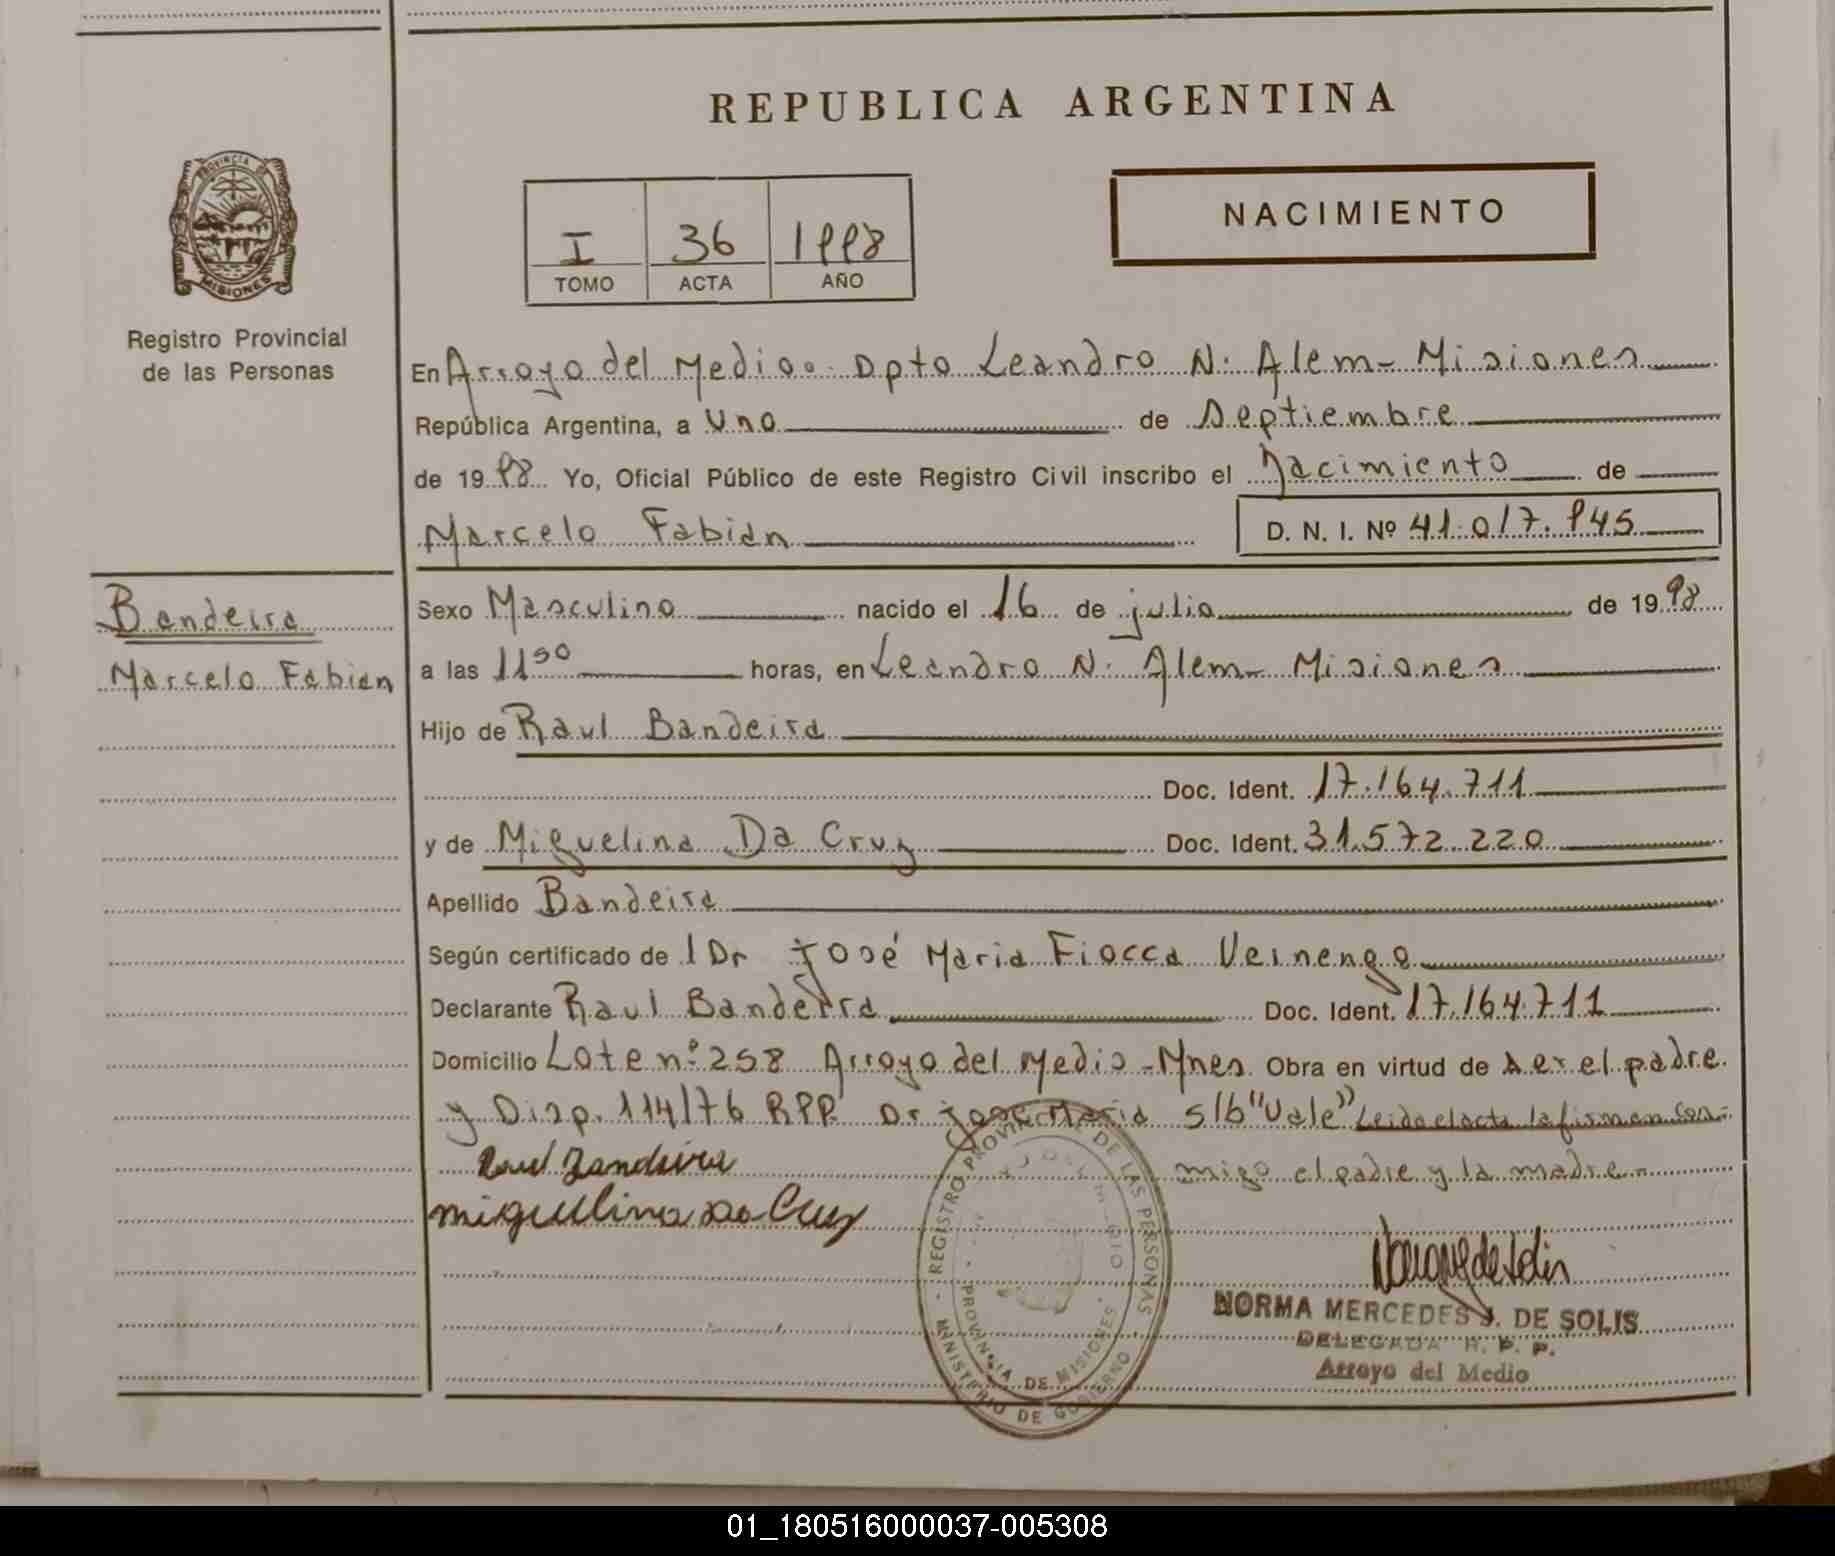 REPUBLICA ARGENTINA
PROVINCIA DE MISIONES
Registro Provincial
de las Personas
I 36 1998
TOMO ACTA AÑO
NACIMIENTO
En Arroyo del Medio. Dpto Leandro N. Alem - Misiones
República Argentina, a Uno de Septiembre
de 1998 Yo, Oficial Público de este Registro Civil inscribo el Nacimiento de
Marcelo Fabian D. N. I. Nº 41.017.945
Bandeira
Marcelo Fabian
Sexo Masculino nacido el 16 de julio de 1998
a las 11 30 horas, en Leandro N. Alem - Misiones
Hijo de Raul Bandeira
Doc. Ident. 17.164.711
y de Miguelina Da Cruz Doc. Ident. 31.572.220
Apellido Bandeira
Según certificado de l Dr José Maria Fiocca Veinengo
Declarante Raul Bandeira Doc. Ident. 17.164.711
Domicilio Lote nº 258 Arroyo del Medio - Mnes Obra en virtud de ser el padre
y Disp. 114/76 RPP Dr José Maria S/b "Vale" Leida el acta la firman con-
migo el padre y la madre.-
Raul Bandeira
miguelina Da Cruz
REGISTRO PROVINCIAL DE LAS PERSONAS
MINISTERIO DE GOBIERNO
PROVINCIA DE MISIONES
NORMA MERCEDES J. DE SOLIS
DELEGADA R. P. P.
Arroyo del Medio
01_180516000037-005308